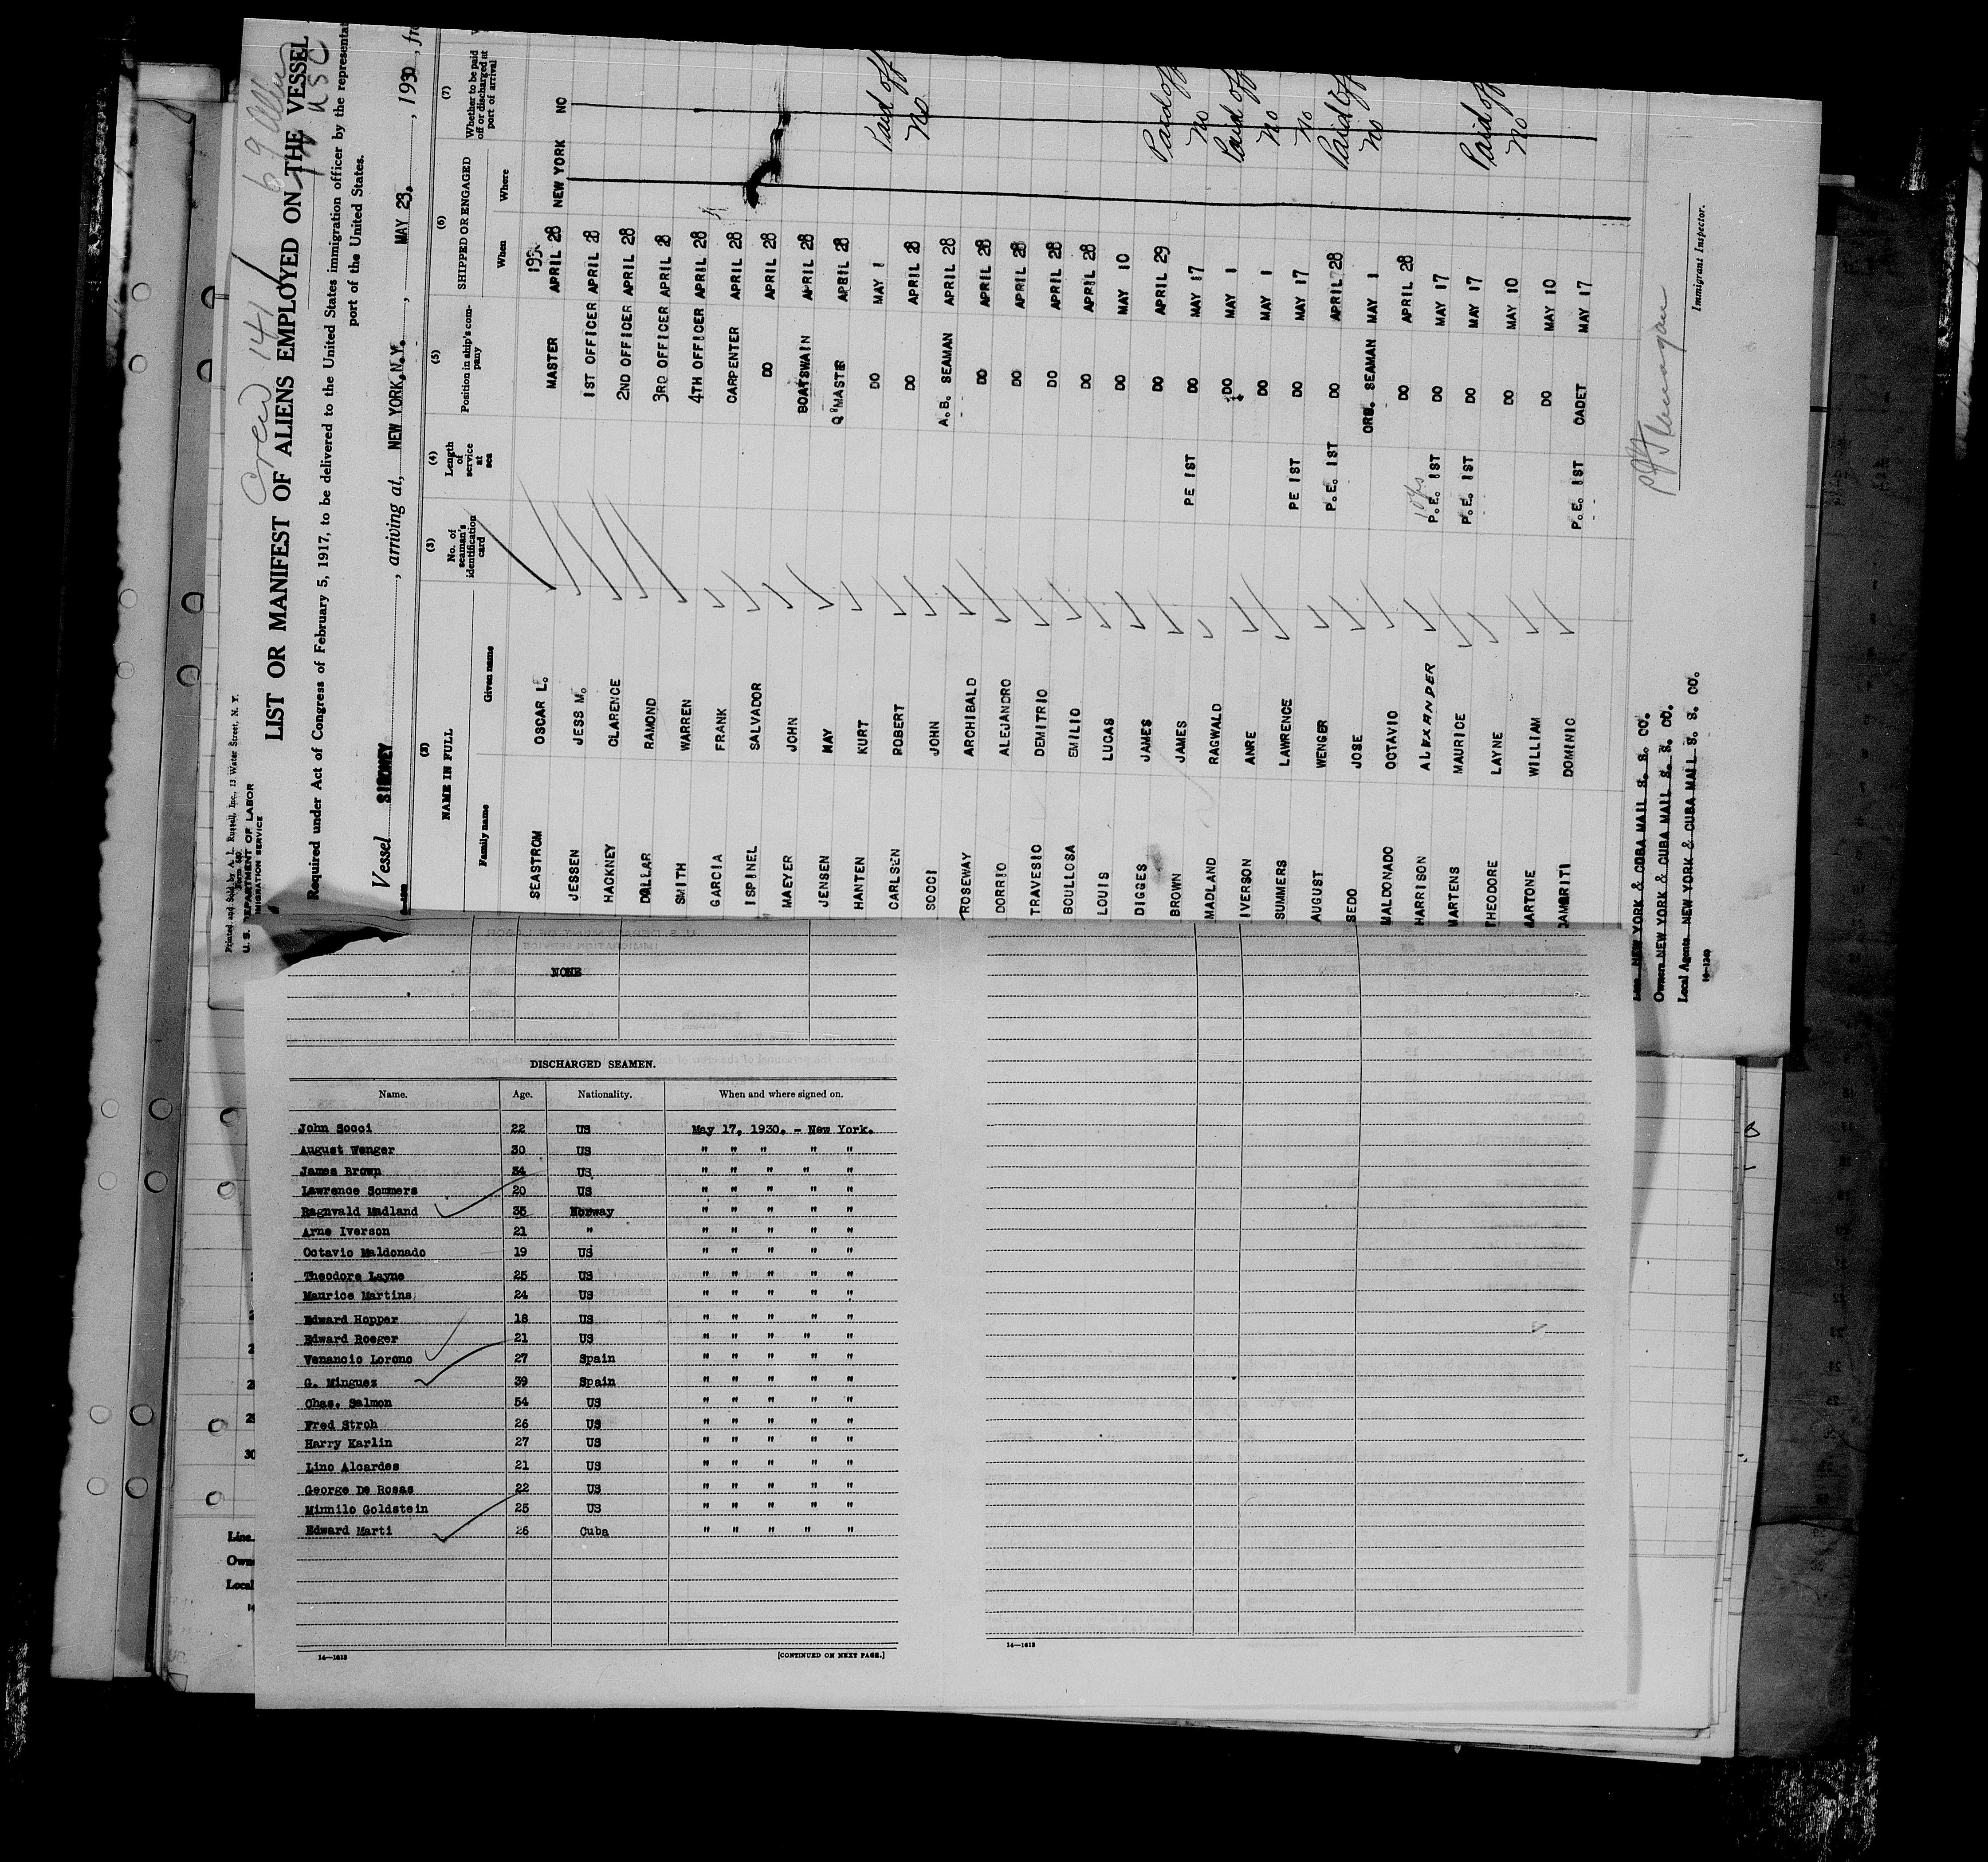 Crew 141
Printed and Sold by A. L. Russell, Inc., 13 Water Street, N. Y.
Form 680
U. S. DEPARTMENT OF LABOR
IMMIGRATION SERVICE
LIST OR MANIFEST OF ALIENS EMPLOYED ON THE VESSEL
Required under Act of Congress of February 5, 1917, to be delivered to the United States immigration officer by the representa
port of the United States.
Vessel SIBONEY, arriving at, NEW YORK, N.Y., MAY 23, 1930, fr
(2) (3) (4) (5) (6) (7)
NAME IN FULL No. of seaman's identification card Length of service at sea Position in ship's company SHIPPED OR ENGAGED Whether to be paid off or discharged at port of arrival
Family name Given name When Where
SEASTROM OSCAR L. MASTER APRIL 28 NEW YORK NO
JESSEN JESS M. 1ST OFFICER APRIL 28
HACKNEY CLARENCE 2ND OFFICER APRIL 28
DOLLAR RAMOND 3RD OFFICER APRIL 28
SMITH WARREN 4TH OFFICER APRIL 28
GARCIA FRANK CARPENTER APRIL 28
ISPINEL SALVADOR DO APRIL 28
MAEYER JOHN BOATSWAIN APRIL 28
JENSEN MAY Q'MASTR APRIL 28
HANTEN KURT DO MAY 1
CARLSEN ROBERT DO APRIL 28
SOCCI JOHN A.B. SEAMAN APRIL 28 Paid off
ROSEWAY ARCHIBALD DO APRIL 28 No
DORRIO ALEJANDRO DO APRIL 28
TRAVESIO DEMITRIO DO APRIL 28
BOULLOSA EMILIO DO APRIL 28
LOUIS LUCAS DO MAY 10
DIGGES JAMES DO APRIL 29
BROWN JAMES PE 1ST DO MAY 17 Paid off
MADLAND RAGWALD DO MAY 1 No
IVERSON ANRE DO MAY 1 Paid off
SUMMERS LAWRENCE PE 1ST DO MAY 17 No
AUGUST WENGER P.E. 1ST DO APRIL 28 No
SEDO JOSE ORD. SEAMAN MAY 1 Paid off
MALDONADO OCTAVIO DO APRIL 28 No
HARRISON ALEXANDER P.E. 1ST DO MAY 17
MARTENS MAURICE P.E. 1ST DO MAY 17
THEODORE LAYNE DO MAY 10 Paid off
MARTONE WILLIAM DO MAY 10 No
DAMBRITI DOMINIC P.E. 1ST CADET MAY 17
Line NEW YORK & CUBA MAIL S. S. CO.
Owners NEW YORK & CUBA MAIL S. S. CO.
Local Agents NEW YORK & CUBA MAIL S. S. CO.
Immigrant Inspector.
14—1240
NONE
DISCHARGED SEAMEN.
Name. Age. Nationality. When and where signed on.
John Socci 22 US May 17, 1930. - New York.
August Wenger 30 US " " " " "
James Brown 34 US " " " " "
Lawrence Sommers 20 US " " " " "
Ragnvald Madland 35 Norway " " " " "
Arne Iverson 21 " " " " " "
Octavio Maldonado 19 US " " " " "
Theodore Layne 25 US " " " " "
Maurice Martins 24 US " " " " "
Edward Hopper 18 US " " " " "
Edward Roeger 21 US " " " " "
Venancio Lorono 27 Spain " " " " "
G. Minguez 39 Spain " " " " "
Chas. Salmon 54 US " " " " "
Fred Stroh 26 US " " " " "
Harry Karlin 27 US " " " " "
Lino Alcardes 21 US " " " " "
George De Rosas 22 US " " " " "
Minnilo Goldstein 25 US " " " " "
Edward Marti 26 Cuba " " " " "
14—1613
[CONTINUED ON NEXT PAGE.]
14—1613
30
Line
Own
Local